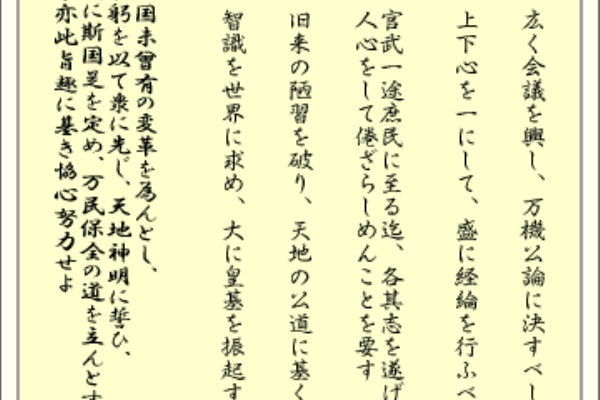 広く会議を興し、万機公論に決すべし
上下心を一にして、盛に経綸を行ふべ
官武一途庶民に至る迄、各其志を遂げ
人心をして倦ざらしめんことを要す
旧来の陋習を破り、天地の公道に基く
智識を世界に求め、大に皇基を振起す
国未曾有の変革を為んとし、
躬を以て衆に先じ、天地神明に誓ひ、
に斯国是を定め、万民保全の道を立んとす
亦此旨趣に基き協心努力せよ